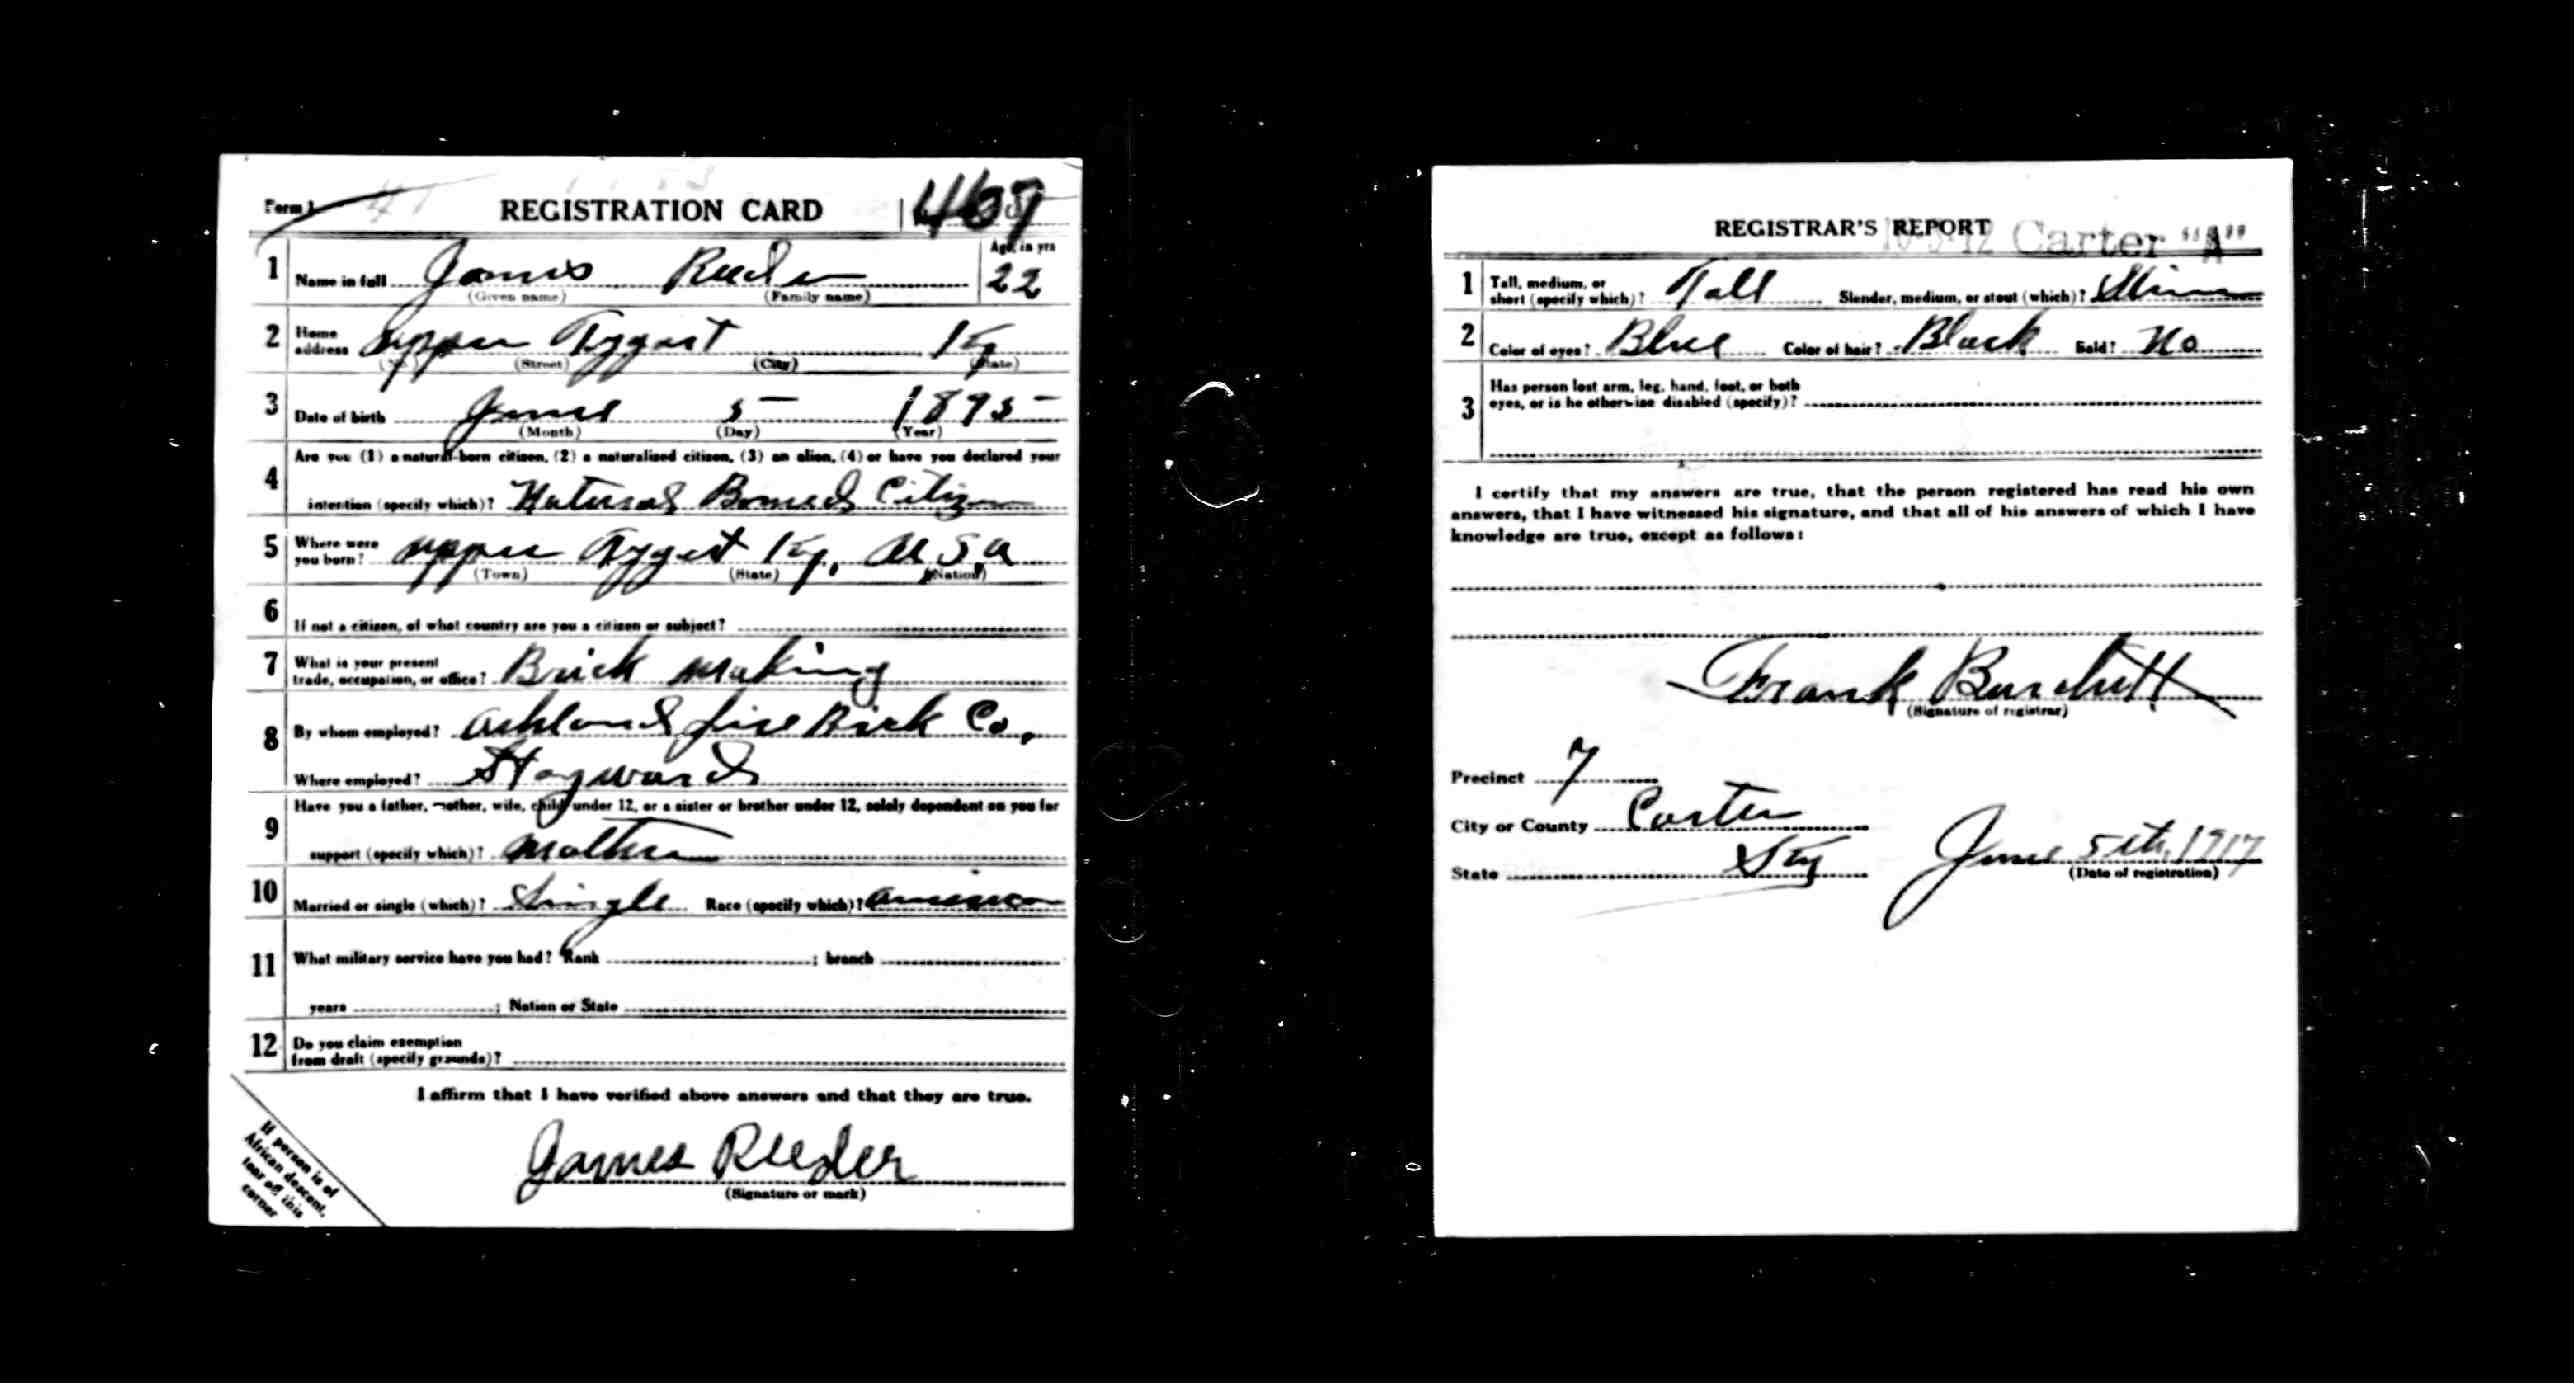 Form 1 REGISTRATION CARD 467
1 Name in full James Reeder Age, in yrs 22
(Given name) (Family name)
2 Home address Upper Tygart Ky
(No.) (Street) (City) (State)
3 Date of birth June 5 1895
(Month) (Day) (Year)
4 Are you (1) a natural-born citizen, (2) a naturalized citizen, (3) an alien, (4) or have you declared your
intention (specify which)? Natural Borned Citizen
5 Where were you born? Upper Tygart Ky, U.S.A
(Town) (State) (Nation)
6 If not a citizen, of what country are you a citizen or subject?
7 What is your present trade, occupation, or office? Brick Making
8 By whom employed? Ashland fire Brick Co.
Where employed? Hayward
9 Have you a father, mother, wife, child under 12, or a sister or brother under 12, solely dependent on you for
support (specify which)? Mother
10 Married or single (which)? Single Race (specify which)? American
11 What military service have you had? Rank ; branch
years ; Nation or State
12 Do you claim exemption
from draft (specify grounds)?
I affirm that I have verified above answers and that they are true.
James Reeder
(Signature or mark)
If person is of
African descent,
tear off this
corner
REGISTRAR'S REPORT Carter "A"
1 Tall, medium, or short (specify which)? Tall Slender, medium, or stout (which)? Slim
2 Color of eyes? Blue Color of hair? Black Bald? No
3 Has person lost arm, leg, hand, foot, or both
eyes, or is he otherwise disabled (specify)?
I certify that my answers are true, that the person registered has read his own
answers, that I have witnessed his signature, and that all of his answers of which I have
knowledge are true, except as follows:
Frank Burchett
(Signature of registrar)
Precinct 7
City or County Carter
State Ky June 5th, 1917
(Date of registration)